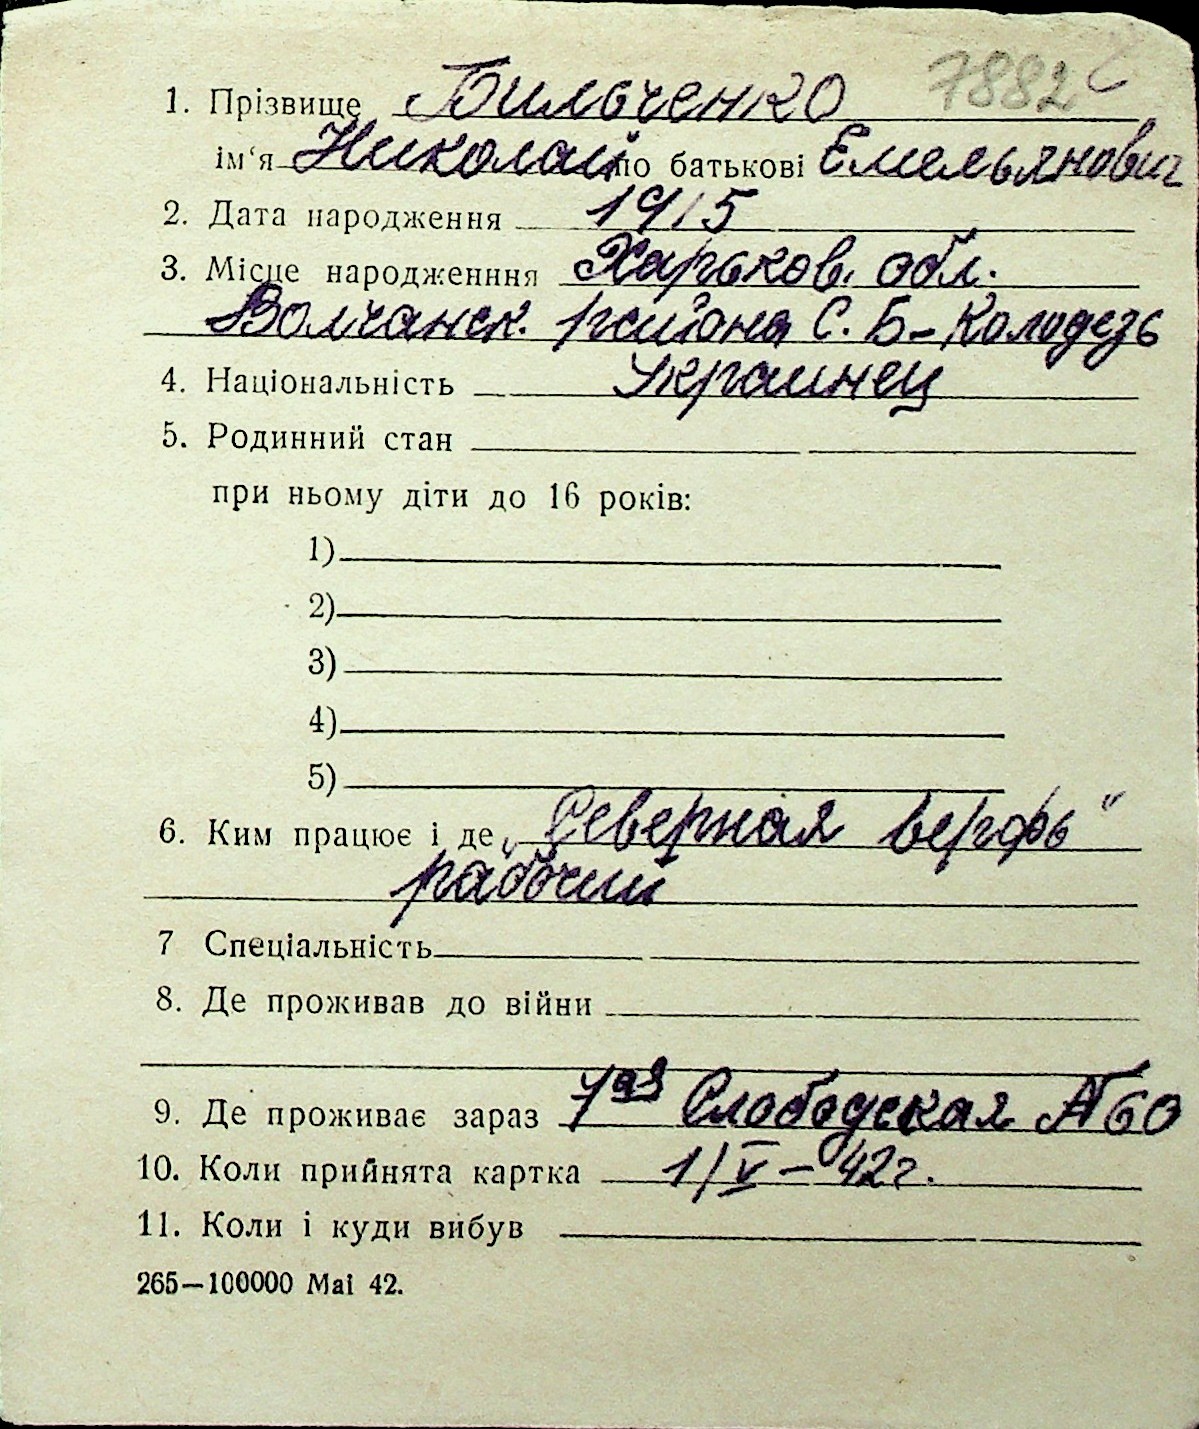 7882
1. Прізвище Бильченко
ім'я Николай по батькові Емельянович
2. Дата народження 1915
3. Місце народженння Харьков. обл.
Волчанск. района С. Б-Колодезь
4. Національність Украинец
5. Родинний стан
при ньому діти до 16 років:
1)
2)
3)
4)
5)
6. Ким працює і де „Северная верфь"
рабочий
7 Спеціальність
8. Де проживав до війни
9. Де проживає зараз 7ая Слободская №60
10. Коли прийнята картка 1/V – 42г.
11. Коли і куди вибув
265—100000 Mai 42.